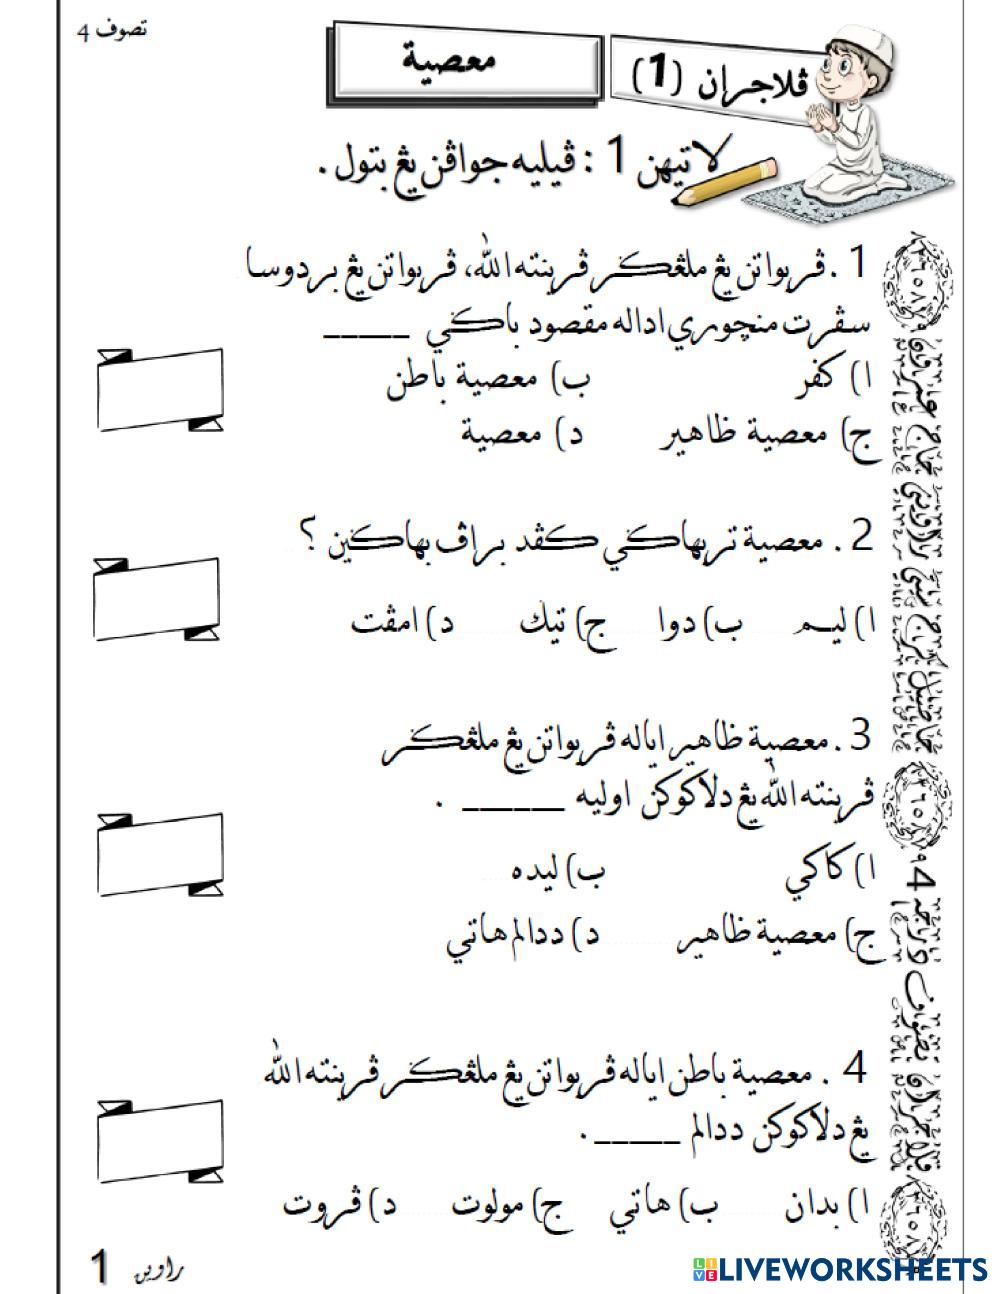 تصوف 4
ڤلاجران (1)
معصية
لاتيهن 1 : ڤيليه جواڤن يڠ بتول .
1 . ڤربواتن يڠ ملڠݢر ڤرينته الله، ڤربواتن يڠ بردوسا
سڤرت منچوري اداله مقصود باݢي _____
ا) كفر
ب) معصية باطن
ج) معصية ظاهير
د) معصية
2 . معصية تربهاݢي كڤد براڤ بهاݢين ؟
ا) ليم
ب) دوا
ج) تيݢ
د) امڤت
3 . معصية ظاهير اياله ڤربواتن يڠ ملڠݢر
ڤرينته الله يڠ دلاكوكن اوليه ______ .
ا) كاكي
ب) ليده
ج) معصية ظاهير
د) ددالم هاتي
4 . معصية باطن اياله ڤربواتن يڠ ملڠݢر ڤرينته الله
يڠ دلاكوكن ددالم _____ .
ا) بدان
ب) هاتي
ج) مولوت
د) ڤروت
راوين 1
LIVE LIVEWORKSHEETS